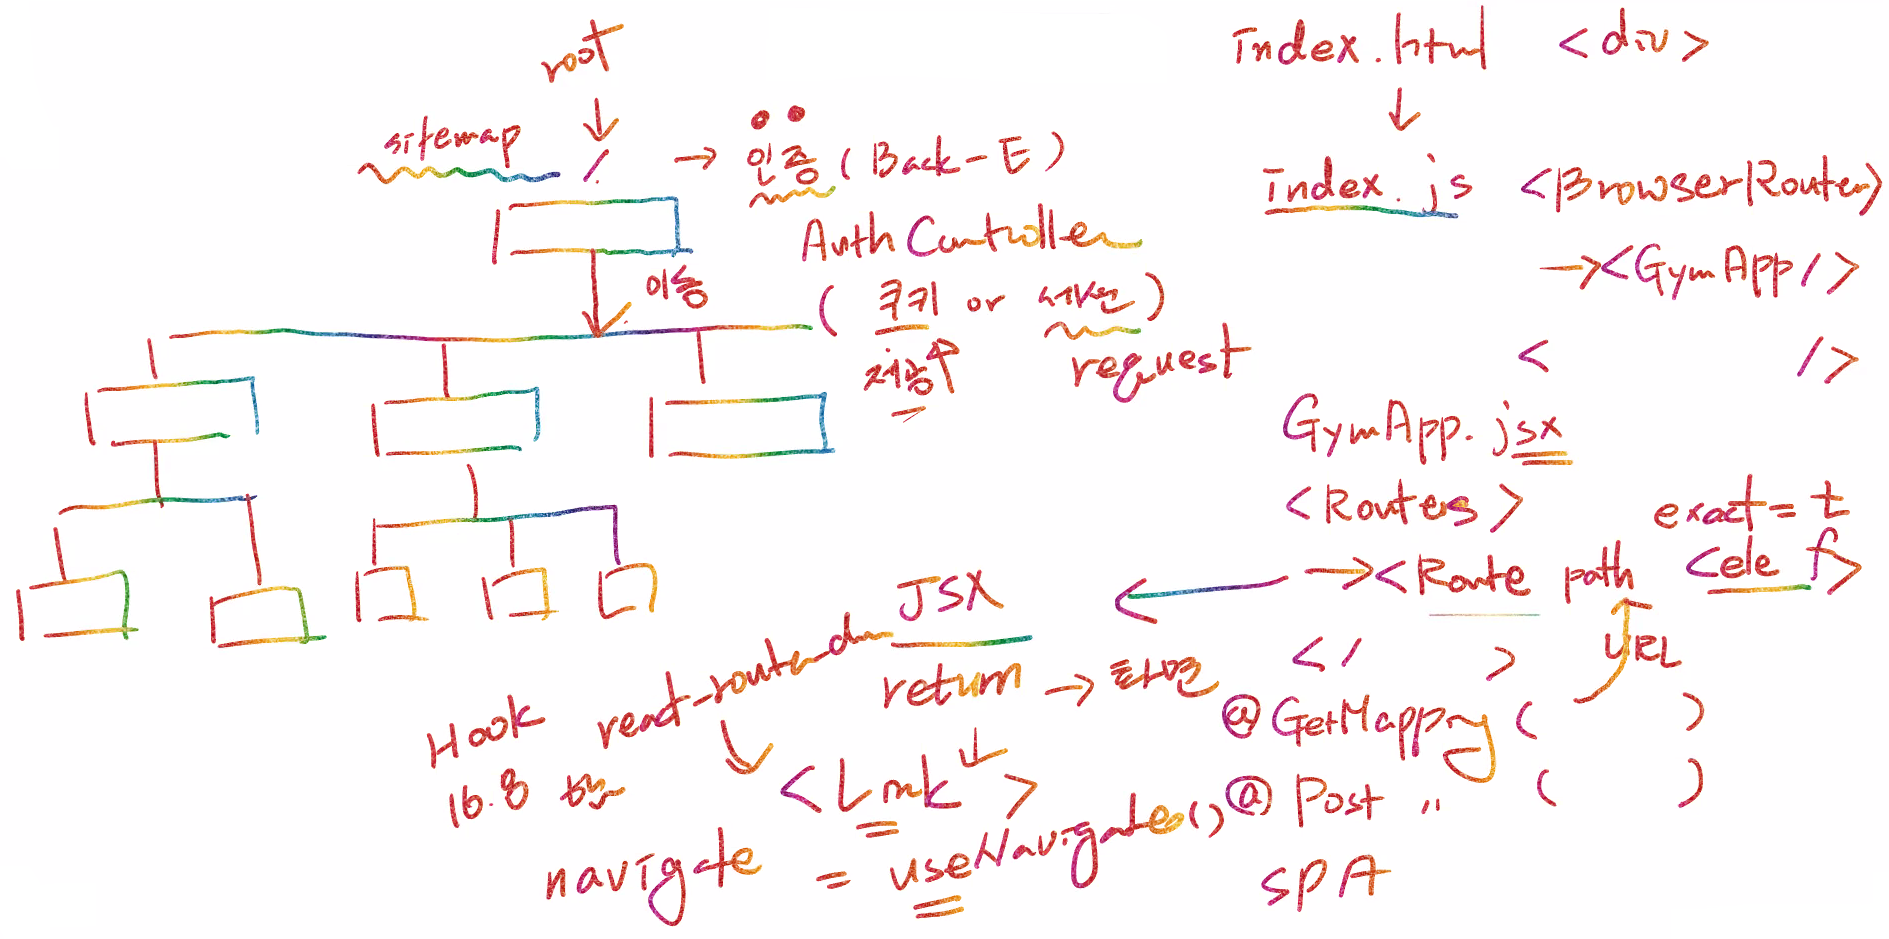 root
sitemap
/
→ 인증 (Back-E)
Auth Controller
이동
( 쿠키 or 세션 )
저장
request
index.html <div>
index.js <BrowserRouter>
→ <GymApp />
< />
GymApp.jsx
<Routers>
exact = t
f
→ <Route path <ele >
URL
</ >
JSX
return → 화면
react-router-dom
Hook
16.8 버전
<Link >
navigate = useNavigate()
@GetMapping ( )
@Post " ( )
SPA